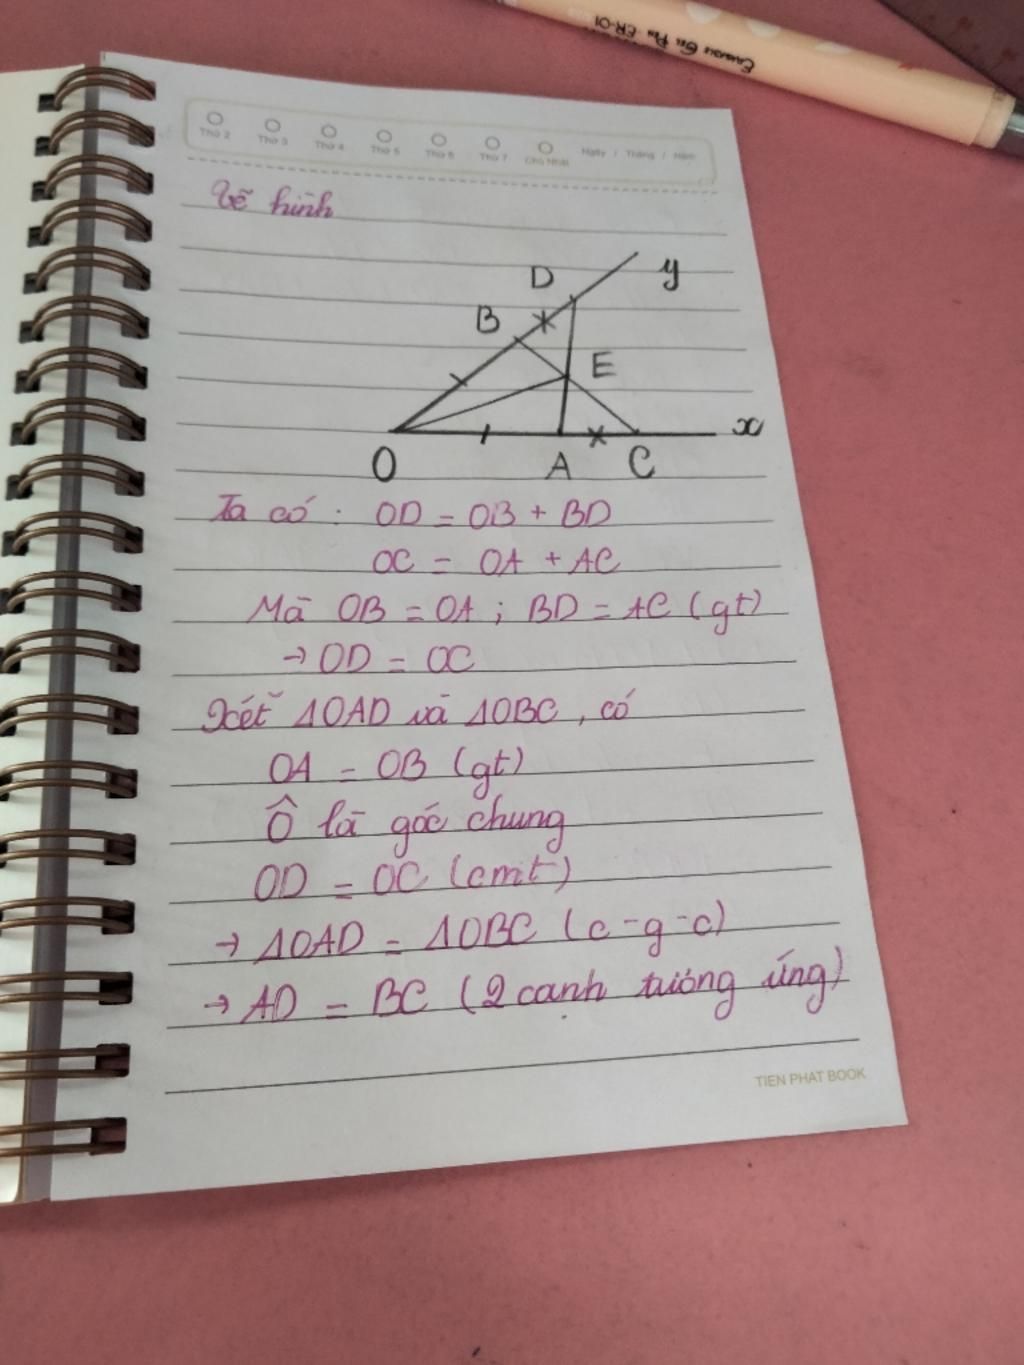 Thứ 2 Thứ 3 Thứ 4 Thứ 5 Thứ 6 Thứ 7 Chủ Nhật Ngày / Tháng / Năm
Vẽ hình
D y
B
E
x
O A C
Ta có : OD = OB + BD
OC = OA + AC
Mà OB = OA ; BD = AC (gt)
→ OD = OC
Xét ΔOAD và ΔOBC , có
OA = OB (gt)
Ô là góc chung
OD = OC (cmt)
→ ΔOAD = ΔOBC (c-g-c)
→ AD = BC (2 cạnh tương ứng)
TIEN PHAT BOOK